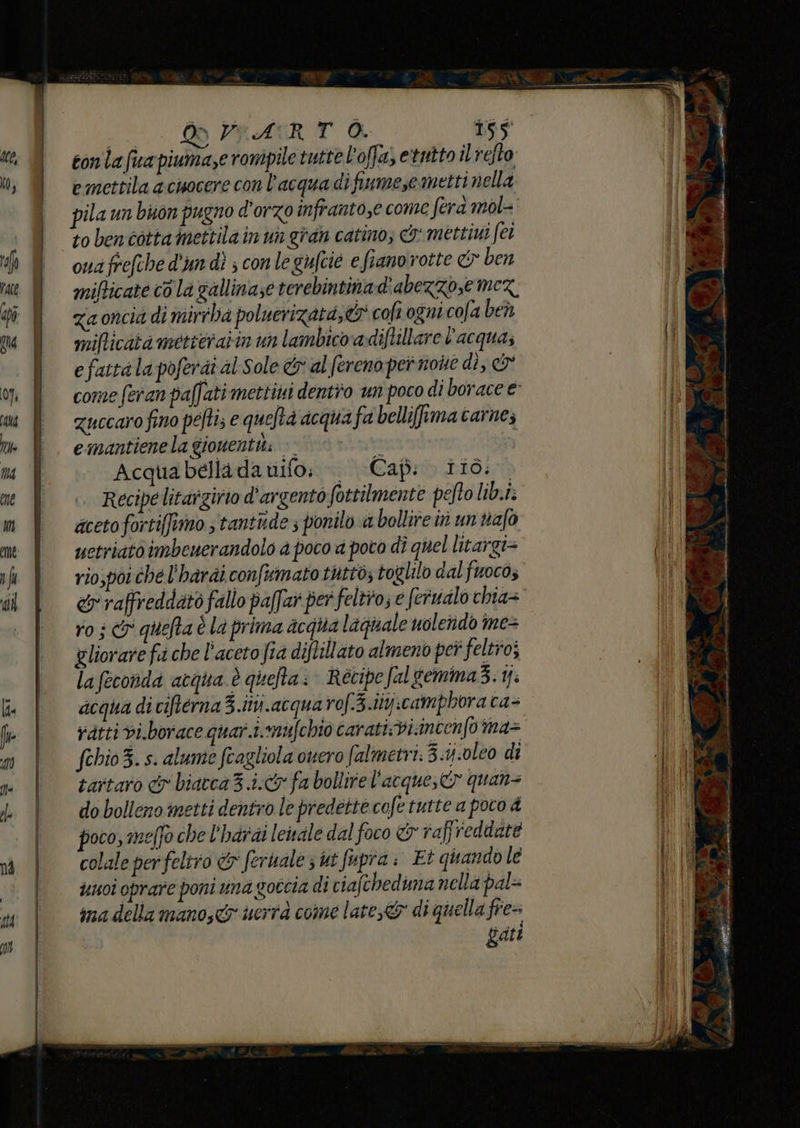 Q V A R T O. 155
con la ſua piuma, e rompile tutte l'oſſa, e tutto il reſto
e mettila a cuocere con l'acqua di fiume, e metti nella
pila un buon pugno d'orzo infranto, e come ſerà mol=
to ben cotta mettila in un gran catino, & mettiui ſei
oua freſche d'un dì, con le guſcie e ſiano rotte & ben
miſticate cō la gallina, e terebintina d'abezzo, e mez
za oncia di mirrha poluerizata, & coſi ogni coſa ben
miſticata metterai in un lambico a diſtillare l'acqua,
e fatta la poſerai al Sole & al ſereno per noue dì, &
come ſeran paſſati mettiui dentro un poco di borace e
zuccaro fino peſti, e queſta acqua fa belliſſima carne,
e mantiene la giouentù.
Acqua bella da uiſo. Cap. 110.
Recipe litargirio d'argento ſottilmente peſto lib.i.
aceto fortiſſimo, tantūde, ponilo a bollire in un uaſo
uetriato imbeuerandolo a poco a poco di quel litargi=
rio, poi che l'harai conſumato tutto, toglilo dal fuoco,
& raffreddato fallo paſſar per feltro, e ſerualo chia=
ro; & queſta è la prima acqua laquale uolendo me=
gliorare fa che l'aceto ſia diſtillato almeno per feltro;
la ſeconda acqua è queſta: Recipe ſal gemma ℥. ij.
acqua di ciſterna ℥.iiij. acqua roſ. ℥.iiij. camphora ca=
ratti vi. borace quar. i. muſchio carati. vi. incenſo ma=
ſchio ℥. s. alume ſcagliola ouero ſalmetri. ℥.ij. oleo di
tartaro & biacca ℥.i. & fa bollire l'acque, & quan=
do bolleno metti dentro le predette coſe tutte a poco a
poco, meſſo che l'harai leuale dal foco & raffreddate
colale per feltro & ſeruale, ut ſupra: Et quando le
uuoi oprare poni una goccia di ciaſcheduna nella pal=
ma della mano, & uerrà come late, & di quella fre=
gati